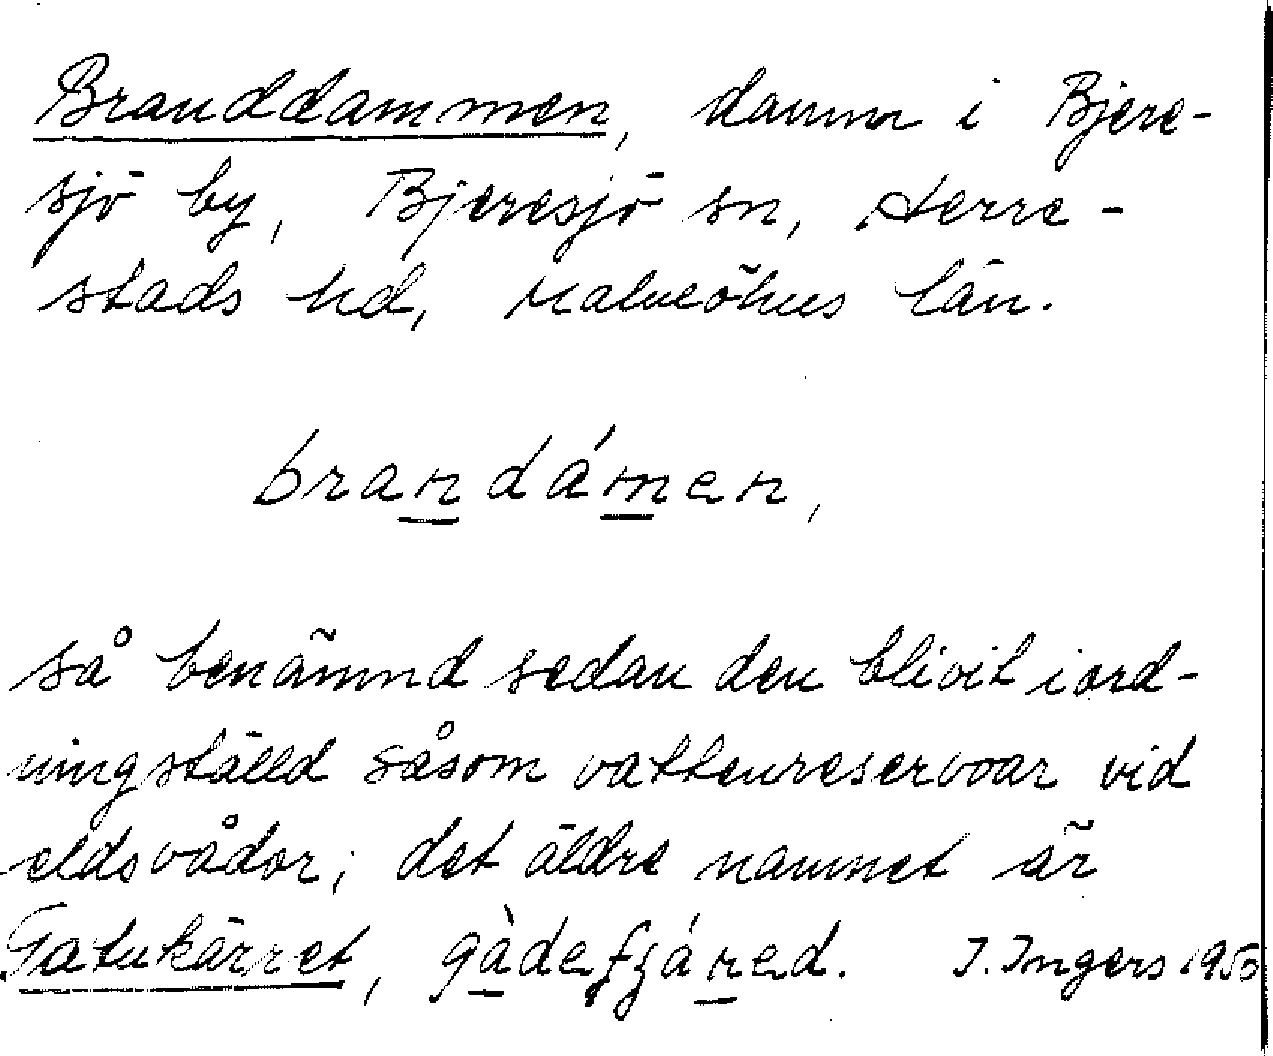 Branddammen, damm i Bjere-
sjö by, Bjeresjö sn, Herre-
stads hd, Malmöhus län.
brandámen,
så benämnd sedan den blivit iord-
ningställd såsom vattenreservoar vid
eldsvådor; det äldre namnet är
Gatukärret, gàdefjáred. I. Ingers 1950